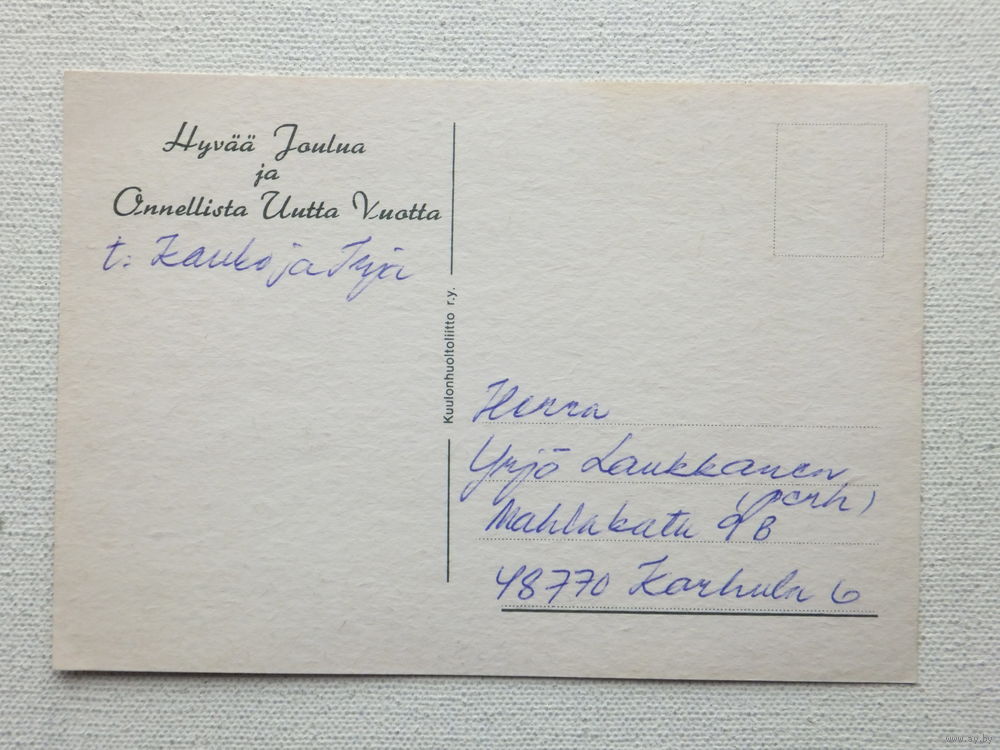 Hyvää Joulua
ja
Onnellista Uutta Vuotta
t. Kauko ja Irja
Kuulonhuoltoliitto r.y.
Herra
Yrjö Laukkanen
(perh)
Mahlakatu B
48770 Karhula 6
www.ay.by